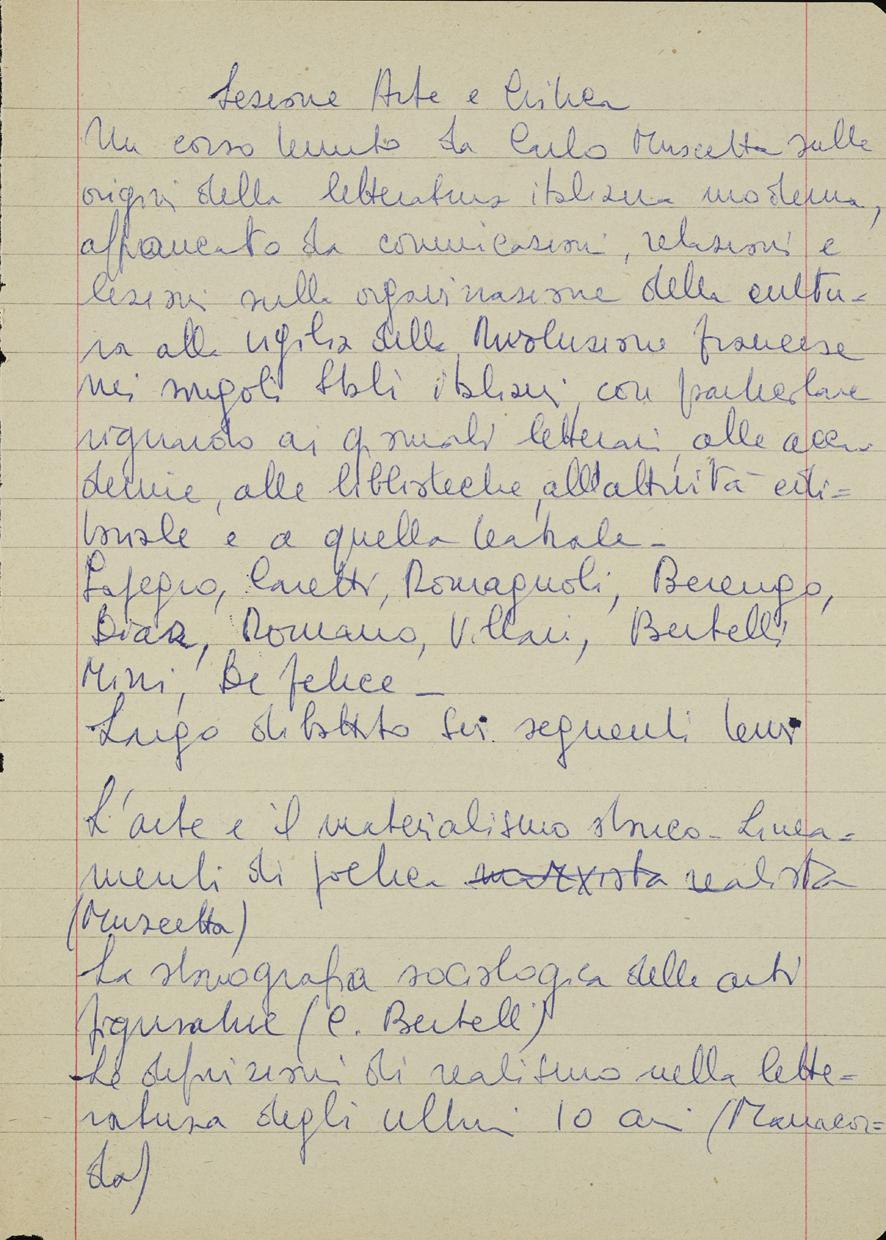 Sezione Arte e Critica
Un corso tenuto da Carlo Muscetta sulle
origini della letteratura italiana moderna,
affiancato da comunicazioni, relazioni e
lezioni sulla organizzazione della cultu=
ra alla vigilia della Rivoluzione francese
nei singoli Stati italiani, con particolare
riguardo ai giornali letterari, alle acca-
demie, alle biblioteche, all'attività edi=
toriale e a quella teatrale -
Sapegno, Caretti, Romagnoli, Berengo,
Diaz, Romano, Villari, Bertelli
Mirri, De Felice -
Largo dibattito sui seguenti temi
L'arte e il materialismo storico - Linea=
menti di poetica marxista realista
(Muscetta)
La storiografia sociologica delle arti
figurative (C. Bertelli)
Le definizioni di realismo nella lette=
ratura degli ultimi 10 anni (Manacor=
da)